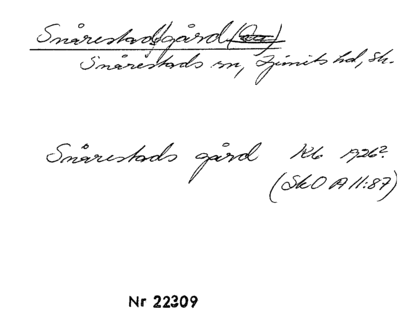 Snårestad(s)gård
Snårestads sn, Ljunits hd, Sk.
Snårestads gård Kb A26².
(SkO A 11:87)
Nr 22309